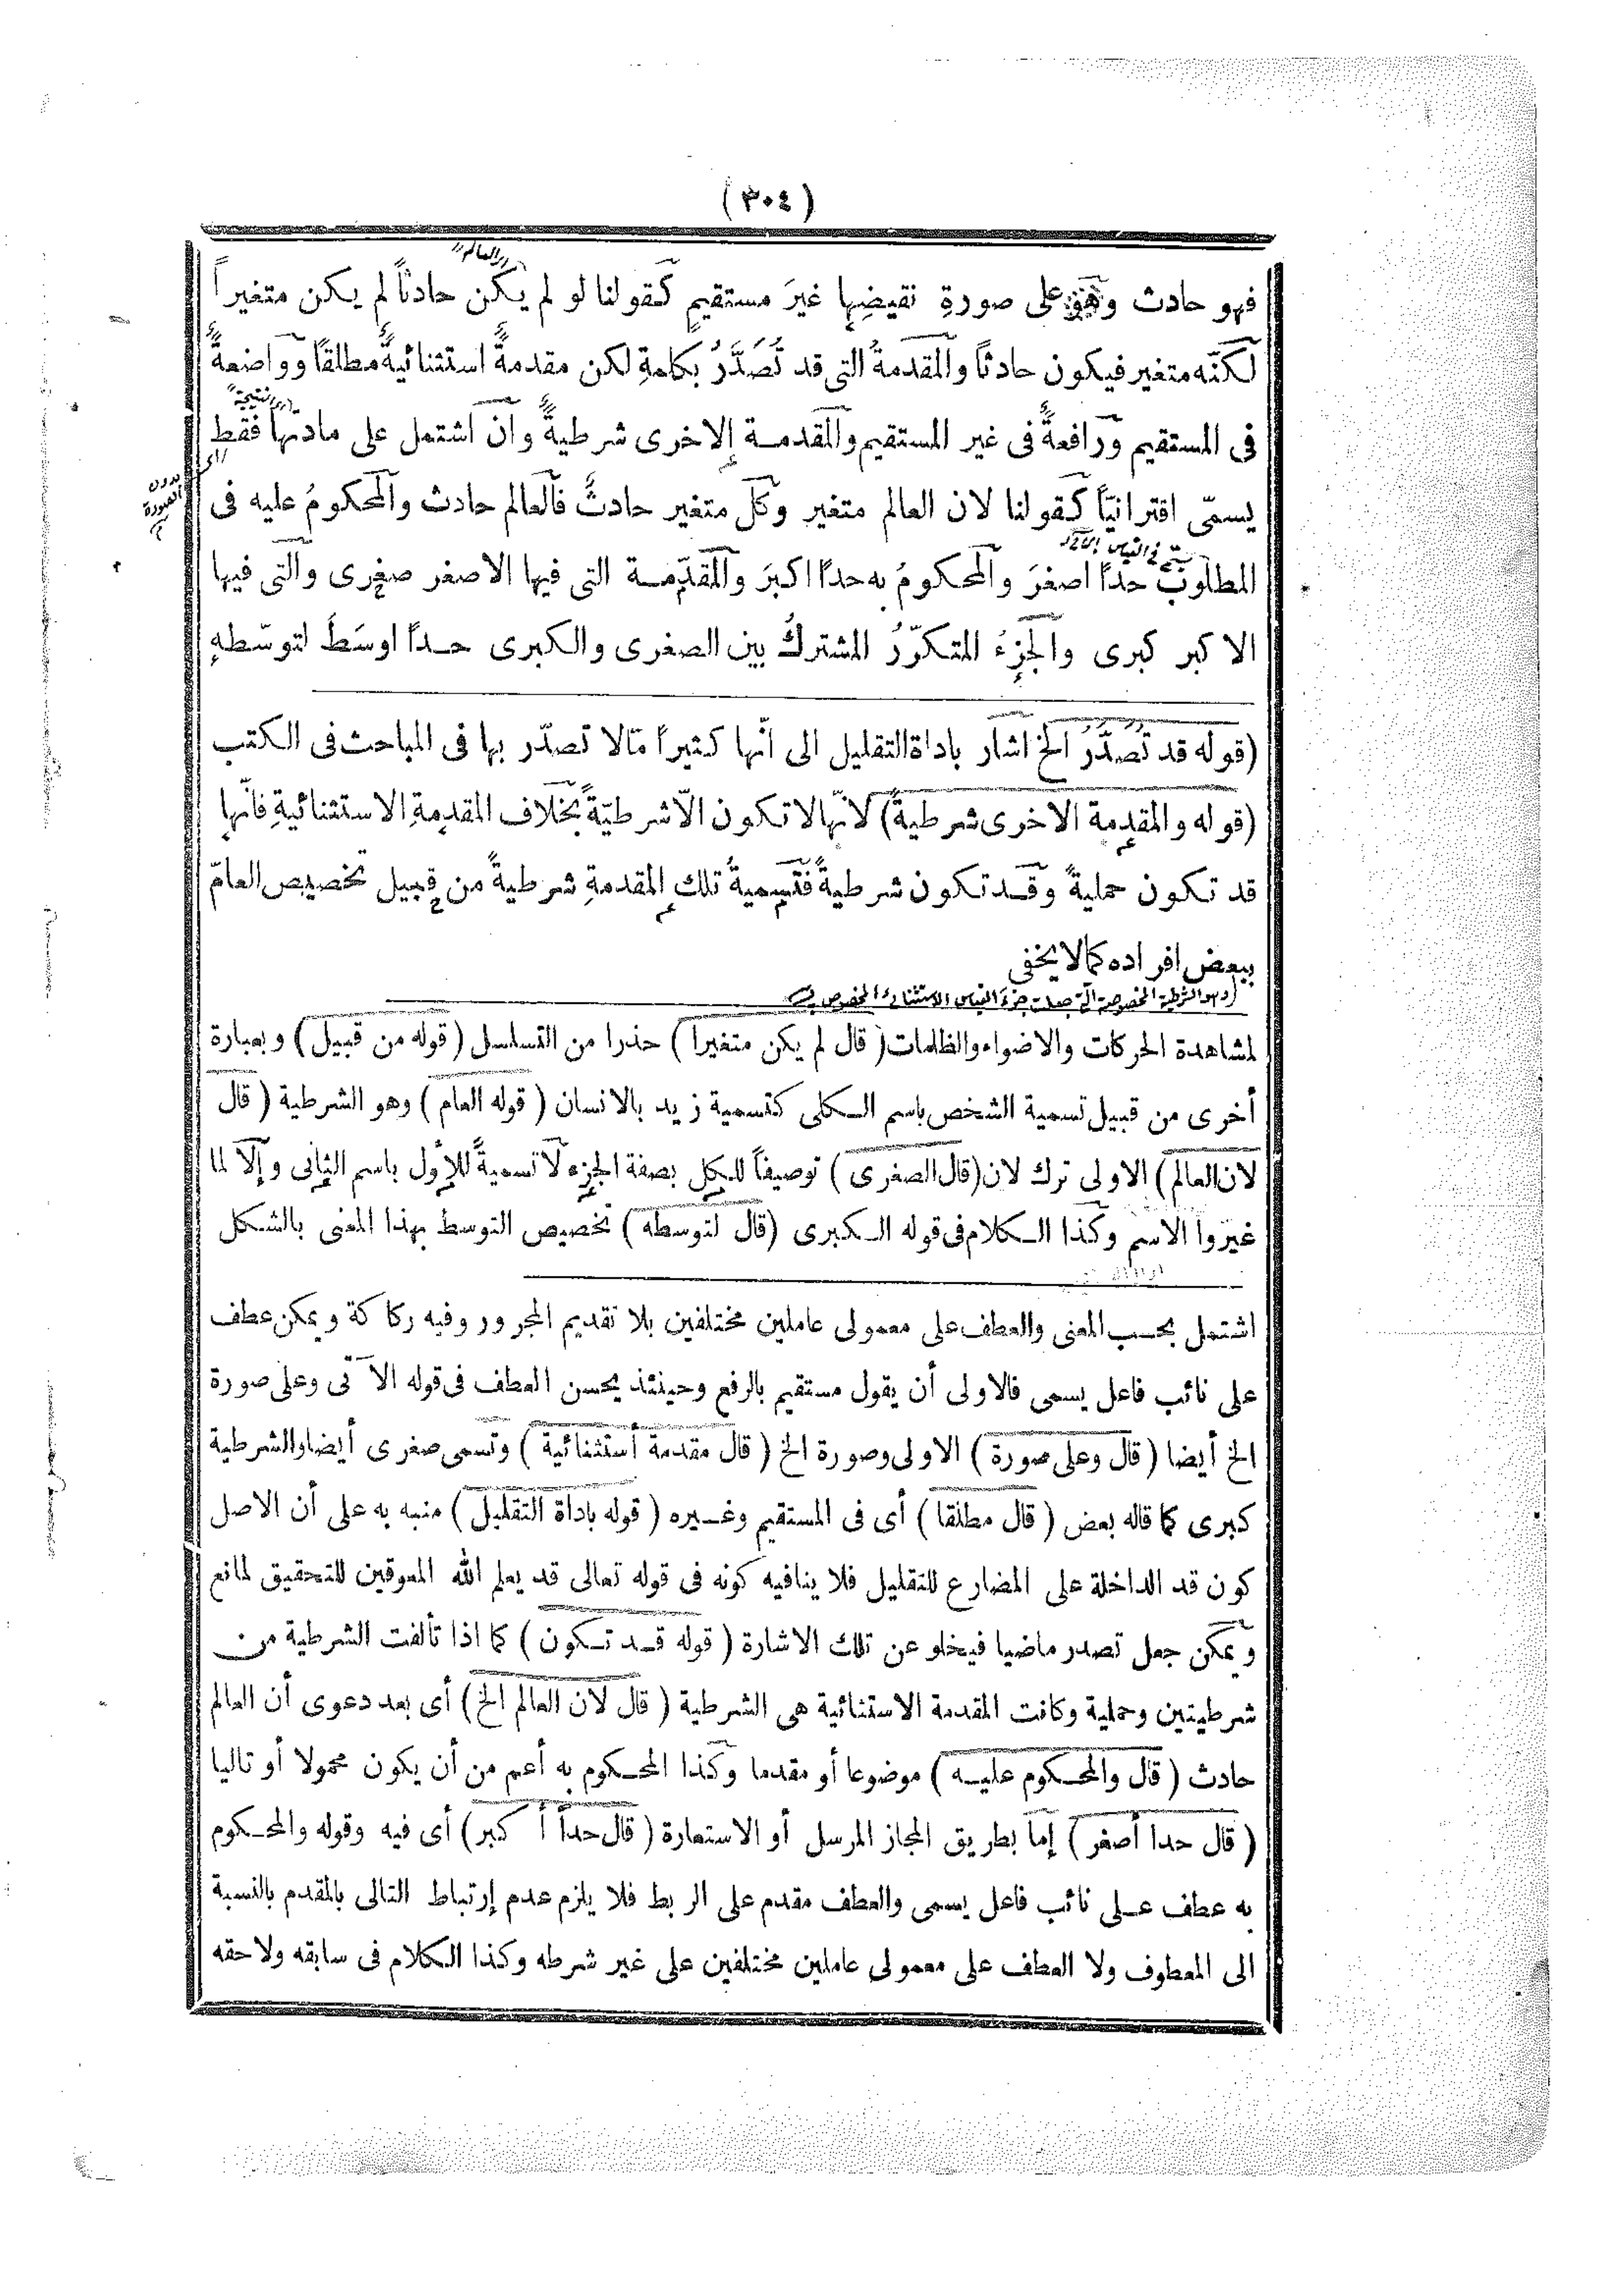 (٣٠٤)
فهو حادث وعلى صورةِ نقيضِها غيرَ مستقيمٍ كقولنا لو لم يكن حادثاً لم يكن متغيراً
لكنّه متغير فيكون حادثاً والمقدمةُ التى قد تُصَدَّرُ بكلمةِ لكن مقدمةً استثنائيةً مطلقاً وواضعةً
فى المستقيم ورافعةً فى غير المستقيم والمقدمة الاخرى شرطيةً وان اشتمل على مادتها فقط
يسمّى اقترانيّاً كقولنا لان العالم متغير وكل متغير حادثٌ فالعالم حادث والمحكومُ عليه فى
المطلوب حداً اصغرَ والمحكومُ به حداً اكبرَ والمقدّمة التى فيها الاصغر صغرى والتى فيها
الاكبر كبرى والجزءُ المتكرّرُ المشتركُ بين الصغرى والكبرى حداً اوسَطَ لتوسّطهِ
(قوله قد تُصدَّرُ الخ اشار باداة التقليل الى انّها كثيراً مّا لا تصدّر بها فى المباحث فى الكتب
(قوله والمقدمة الاخرى شرطيةً) لانّها لا تكون الّا شرطيّةً بخلاف المقدمةِ الاستثنائيةِ فانّها
قد تكون حمليةً وقد تكون شرطيةً فتسميةُ تلك المقدمةِ شرطيةً من قبيل تخصيص العامّ
ببعض افراده كما لا يخفى
لمشاهدة الحركات والاضواء والظلمات (قال لم يكن متغيرا) حذرا من التسلسل (قوله من قبيل) وبعبارة
أخرى من قبيل تسمية الشخص باسم الكلى كتسمية زيد بالانسان (قوله العام) وهو الشرطية (قال
لان العالم) الاولى ترك لان (قال الصغرى) توصيفاً للكل بصفة الجزء لا تسميةً للأول باسم الثانى وإلا لما
غيروا الاسم وكذا الكلام فى قوله الكبرى (قال لتوسطه) تخصيص التوسط بهذا المعنى بالشكل
اشتمل بحسب المعنى والعطف على معمولى عاملين مختلفين بلا تقديم المجرور وفيه ركاكة ويمكن عطف
على نائب فاعل يسمى فالاولى أن يقول مستقيم بالرفع وحينئذ يحسن العطف فى قوله الآتى وعلى صورة
الخ أيضا (قال وعلى صورة) الاولى وصورة الخ (قال مقدمة أستثنائية) وتسمى صغرى أيضا والشرطية
كبرى كما قاله بعض (قال مطلقا) أى فى المستقيم وغيره (قوله باداة التقليل) منبه به على أن الاصل
كون قد الداخلة على المضارع للتقليل فلا ينافيه كونه فى قوله تعالى قد يعلم الله المعوقين للتحقيق لمانع
ويمكن جعل تصدر ماضيا فيخلو عن تلك الاشارة (قوله قد تكون) كما اذا تألفت الشرطية من
شرطيتين وحملية وكانت المقدمة الاستثنائية هى الشرطية (قال لان العالم الخ) أى بعد دعوى أن العالم
حادث (قال والمحكوم عليه) موضوعا أو مقدما وكذا المحكوم به أعم من أن يكون محمولا أو تاليا
(قال حدا أصغر) إما بطريق المجاز المرسل أو الاستعارة (قال حداً أكبر) أى فيه وقوله والمحكوم
به عطف على نائب فاعل يسمى والعطف مقدم على الربط فلا يلزم عدم إرتباط التالى بالمقدم بالنسبة
الى المعطوف ولا العطف على معمولى عاملين مختلفين على غير شرطه وكذا الكلام فى سابقه ولاحقه